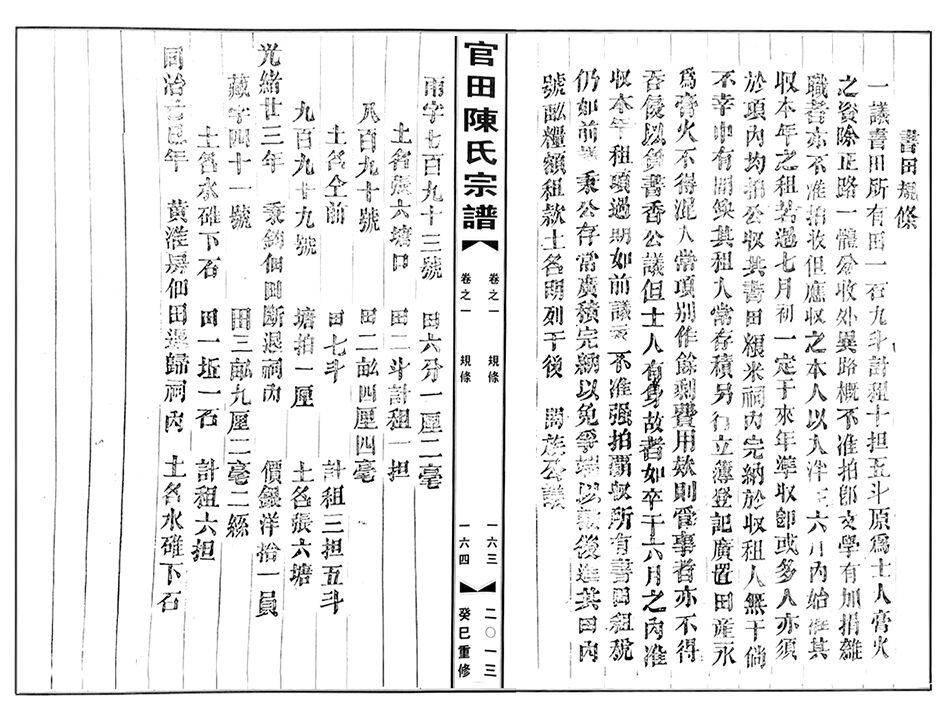 書田規條
一議書田所有田一石九斗計租十担五斗原為士人膏火
之資除正路一體分收外異路概不准拍即文學有加捐雜
職者亦不准拍收但應收之本人以入泮在六月內始准其
收本年之租若過七月初一定于來年準收即或多人亦須
於項內均拍公收其書田糧米祠內完納於收租人無干倘
不幸中有間缺其租入常存積另行立簿登記廣置田產永
為膏火不得混入常項別作餘剩費用欵則管事者亦不得
吞侵以負書香公議但士人有身故者如卒于六月之內准
收本年租項過期如前議不准强拍霸収所有書田租稅
仍如前秉公存常廣積完納以免爭端以後進其田內
號畝糧額租款土名明列于後 闔族公議
官田陳氏宗譜
卷之一 規條 一六三 二〇一三
卷之一 規條 一六四 癸巳重修
南字七百九十三號 田六分一厘二毫
土名張六塘口 田二斗計租一担
八百九十號 田二畝四厘四毫
土名仝前 田七斗 計租三担五斗
九百九十九號 塘拍一厘 土名張六塘
光緒廿三年 秉鈞佃田斷退祠內 價銀洋拾一員
藏字四十一號 田三畝九厘二毫二絲
土名水碓下石 田一坵一石 計租六担
同治己巳年 黃淮房佃田退歸祠內 土名水碓下石